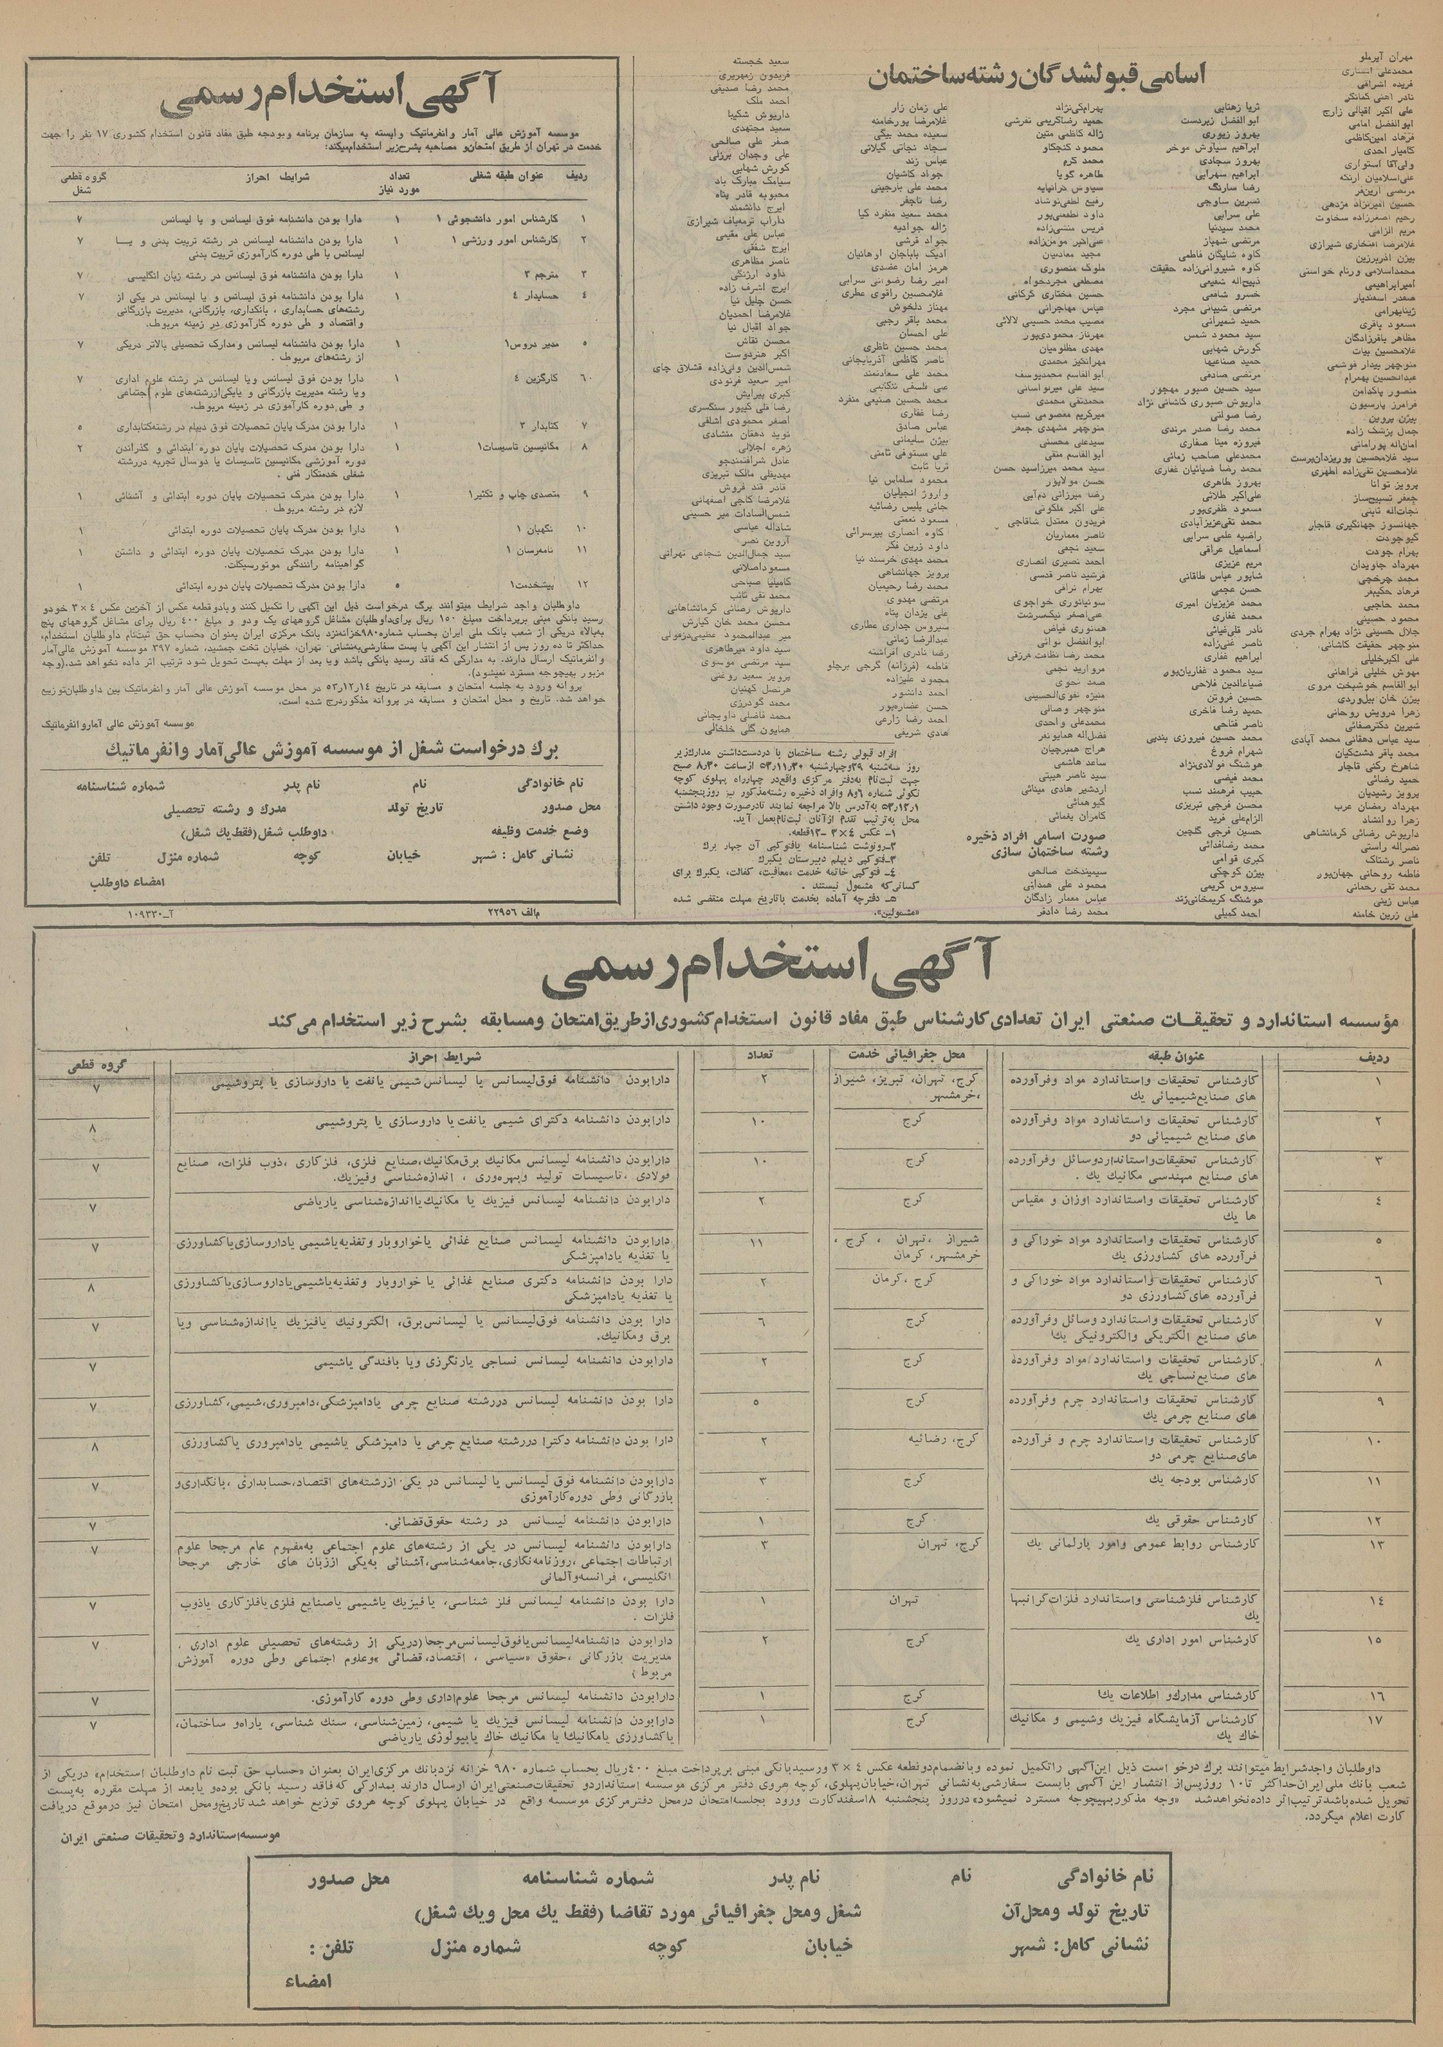 اسامی قبولشدگان رشته ساختمان
مهران آیرملو
محمدعلی انصاری
فریده اشراقی
نادر اهنی کمانگر
علی اکبر اقبالی زارج
ابوالفضل امامی
فرهاد امین‌کاظمی
کامیار احدی
ولی‌آقا استواری
علی‌اسلامیان ارتکه
مرتضی آرین‌فر
حسین امیرنژاد مژدهی
رحیم اصغرزاده سخاوت
مریم الزامی
غلامرضا افتخاری شیرازی
بیژن آذربرزین
محمداسلامی ورنام خواستی
امیرابراهیمی
صفدر اسفندیار
ژینابهرامی
مسعود باقری
مظاهر باقرزادگان
غلامحسین بیات
منوچهر بیدار موشمی
عبدالحسین بهمرام
منصور پاکدامن
فرامرز پارسیون
بیژن پروین
جمال پزشک زاده
امان‌اله پورامانی
سید غلامحسین پوریزدان‌پرست
غلامحسین تقی‌زاده اطهری
پرویز توانا
جعفر تسبیح‌ساز
نجات‌اله ثابتی
جهانسوز جهانگیری قاجار
گیوجودت
بهرام جودت
مهرداد جاویدان
محمد چرخچی
فرهاد حکیمفر
محمد حاجبی
محمود حسینی
جلال حسینی نژاد بهرام جردی
منوچهر حقیقت کاشانی
علی اکبرخلیلی
مهوش خلیلی فراهانی
ابوالقاسم خوشبخت مروی
بیژن خان بیل‌وردی
زهرا درویش روحانی
شیرین دکترصفائی
سید عباس دهقانی محمد آبادی
محمد باقر دشت‌کیان
شاهرخ رکنی قاجار
حمید رضائی
پرویز رشیدیان
مهرداد رمضان عرب
زهرا روانشاد
داریوش رضائی کرمانشاهی
نصراله راستی
ناصر رشتاک
فاطمه روحانی جهان‌پور
محمد تقی رحمانی
عباس زینی
علی زرین خامنه
ثریا زهتابی
ابوالفضل زبردست
بهروز زیوری
ابراهیم سیاوش موخر
بهروز سجادی
ابراهیم سهرابی
رضا سارنگ
نسرین ساوجی
علی سرابی
محمد سیدنیا
مرتضی شهباز
کاوه شایگان فاطمی
کاوه شیروانی‌زاده حقیقت
ذبیح‌اله شفیعی
خسرو شافعی
مرتضی شیبانی مجرد
حمید شمیرانی
سید محمود شمس
کورش شهابی
حمید صناعیها
مرتضی صادقی
سید حسین صبور مهجور
داریوش صبوری کاشانی نژاد
رضا صولتی
محمد رضا صدر مرندی
فیروزه مینا صفاری
محمدعلی صاحب زمانی
محمد رضا ضیائیان غفاری
بهروز طاهری
علی‌اکبر طلائی
مسعود ظفری‌پور
محمد تقی‌عزیزآبادی
راضیه علمی سرابی
اسماعیل عراقی
مریم عزیزی
شاپور عباس طاقانی
حسن عجمی
محمد عزیزیان امیری
محمد غفاری
نادر قلی‌غیائی
ناصر غنی‌زاده
ابراهیم غفاری
سید محمود غفاریان‌پور
ضیاءالدین فلاحی
حسین فروتن
حمید رضا فاخری
ناصر فتاحی
محمد حسین فیروزی بندپی
شهرام فروغ
هوشنگ فولادی‌نژاد
محمد فیضی
حبیب فرهمند نسب
محمد فرجی تبریزی
الزام‌علی فرید
حسین فرجی گلچین
محمد رضافدائی
کبری قوامی
بیژن کوچکی
سیروس کریمی
هوشنگ کریمخانی‌زند
احمد کمیلی
بهرام‌کی‌نژاد
حمید رضاکریمی تفرشی
ژاله کاظمی متین
محمود کنجکاو
محمد کرم
طاهره گویا
سیاوش درانپایه
رفیع لطفی‌نوشاد
داود لطفعلی‌پور
فریس متسی‌زاده
علی‌اکبر مومن‌زاده
مجید معادنیان
ملوک منصوری
مصطفی مجردخواه
حسین مختاری گرکانی
عباس مهاجرانی
مصیب محمد حسینی لالائی
مهرناز محمودی‌پور
مهدی مظلومیان
مهرانگیز محمدی
ابوالقاسم محمدیوسف
سید علی میرنواسانی
محمدتقی محمدی
میرکریم معصومی نسب
منوچهر مشهدی جعفر
سیدعلی محسنی
ابوالقاسم متقی
سید محمد میرزاسید حسن
حسن مولاپور
رضا میرزائی دم‌آبی
علی اکبر ملکوتی
فریدون معتدل شاقاجی
ناصر معماریان
سعید نجمی
احمد نصیری انصاری
فرشید ناصر قدسی
بهرام نراقی
سونیانوری خواجوی
علی‌اصغر نیکسرشت
همانوری فیاض
ابوالفضل نوائی
محمد رضا نظامت فرزقی
مروارید نجمی
صمد نحوی
منیژه نقوی‌الحسینی
منوچهر وصالی
محمدعلی واحدی
فضل‌اله همایونفر
هراچ همبرچیان
ساعد هاشمی
سید ناصر هیبتی
اردشیر هادی میبنائی
گیو همائی
کامران یغمائی
صورت اسامی افراد ذخیره
رشته ساختمان سازی
سیمیندخت صالحی
محمود علی همدانی
عباس معمار زادگان
محمد رضا دادفر
علی زمان زار
غلامرضا پورخامنه
سعیده محمد بیگی
سجاد نجاتی گیلانی
عباس زند
جواد کاشیان
محمد علی بارچینی
رضا تاجفر
محمد سعید منفرد کیا
ژاله جوادیه
جواد قرشی
ادیک باباجان اوهانیان
هرمز امان عضدی
امیر رضا رضوانی سرابی
غلامحسین رافوی عطری
مهناز دلخوش
محمد باقر رجبی
علی احسان
محمد حسین ناظری
ناصر کاظمی آذربایجانی
محمد علی سعادتمند
عبی فلسفی تنکابنی
محمد حسین صنیعی منفرد
رضا غفاری
عباس صادق
بیژن سلیمانی
علی مستوفی ثامنی
ثریا ثابت
محمود سلماس نیا
واروژ انجیلیان
جانی پلیس رضائیه
مسعود نعمتی
کاوه انصاری بیرسرائی
داود زرین فکر
محمد مهدی خرسند نیا
پرویز جهانشاهی
محمد رضا رحیمیان
مرتضی مهدوی
علی یزدان پناه
سیروس جداری عطاری
عبدالرضا زمانی
رضا نادری افراشته
فاطمه (فرزانه) گرجی برجلو
محمود علیزاده
احمد دانشور
حسن عصاره‌پور
احمد رضا زارعی
هادی شریفی
سعید خجسته
فریدون زمهریری
محمد رضا صدیقی
احمد ملک
داریوش شکیبا
سعید مجتهدی
صفر علی صالحی
علی وجدان برزلی
کورش شهابی
سیامک مبارک باد
محبوبه قادر پناه
ایرج دانشمند
داراب ترمه‌باف شیرازی
عباس علی مقیمی
ایرج شفقی
ناصر مظاهری
داود ارژنگی
ایرج اشرف زاده
حسن جلیل نیا
غلامرضا احمدیان
جواد اقبال نیا
محسن نقاش
اکبر هنردوست
شمس‌الدین ولی‌زاده قشلاق چای
امیر سعید فرنودی
کبری پیرایش
رضا قلی کیپور سنگسری
اصغر محمودی اشلقی
نوید دهقان منشادی
زهره اجلالی
عادل شرافتمندجو
مهدیقلی مالک تبریزی
قادر قند فروش
غلامرضا کاجی اصفهانی
شمس‌السادات میر حسینی
شاداله عباسی
آروین نصر
سید جمال‌الدین شجاعی تهرانی
مسعوداصلانی
کامیلیا صباحی
محمد تقی ثائب
داریوش رضائی کرمانشاهانی
محسن محمد خان کیارش
میر عبدالمحمود عظیمی‌دزفولی
سید داود میرطاهری
سید مرتضی موسوی
پرویز سعید روغنی
هرنصل کهنیان
محمد گودرزی
محمد فاضلی داویجانی
همایون گلی خلخالی
افراد قبولی رشته ساختمان با دردست‌داشتن مدارک‌زیر
روز سه‌شنبه ۲۹وچهارشنبه ۵۳٫۱۱٫۳۰ ازساعت ۸٫۳۰ صبح
جهت ثبت‌نام به‌دفتر مرکزی واقع‌در چهارراه پهلوی کوچه
نکوئی شماره ۶و۸ وافراد ذخیره رشته‌مذکور نیز روزپنجشنبه
۵۳٫۱۲٫۱ به‌آدرس بالا مراجعه نمایند تادرصورت وجود داشتن
محل به‌ترتیب تقدم ازآنان ثبت‌نام‌بعمل آید.
۱- عکس ۴×۳ -۱۲قطعه.
۲-رونوشت شناسنامه یافتوکپی آن چهار برگ
۳-فتوکپی دیپلم دبیرستان یکبرگ
۴- فتوکپی خاتمه خدمت، معافیت، کفالت، یکبرگ برای
کسانی‌که مشمول نیستند .
۵- دفترچه آماده بخدمت باتاریخ مهلت منقضی شده
«مشمولین».
آگهی استخدام رسمی
موسسه آموزش عالی آمار وانفرماتیک وابسته به سازمان برنامه وبودجه طبق مفاد قانون استخدام کشوری ۱۷ نفر را جهت
خدمت در تهران از طریق امتحان‌و مصاحبه بشرح‌زیر استخدام‌میکند:
ردیف عنوان طبقه شغلی تعداد مورد نیاز شرایط احراز گروه قطعی شغل
۱ کارشناس امور دانشجوئی ۱ ۱ دارا بودن دانشنامه فوق لیسانس و یا لیسانس ۷
۲ کارشناس امور ورزشی ۱ ۱ دارا بودن دانشنامه لیسانس در رشته تربیت بدنی و یا ۷
لیسانس با طی دوره کارآموزی تربیت بدنی
۳ مترجم ۳ ۱ دارا بودن دانشنامه فوق لیسانس در رشته زبان انگلیسی ۷
۴ حسابدار ۴ ۱ دارا بودن دانشنامه فوق لیسانس و یا لیسانس در یکی از ۷
رشته‌های حسابداری ، بانکداری، بازرگانی، مدیریت بازرگانی
واقتصاد و طی دوره کارآموزی در زمینه مربوط.
۵ مدیر دروس۱ ۱ دارا بودن دانشنامه لیسانس ومدارک تحصیلی بالاتر دریکی ۷
از رشته‌های مربوط .
۶ کارگزین ۴ ۱ دارا بودن فوق لیسانس ویا لیسانس در رشته علوم اداری ۷
ویا رشته مدیریت بازرگانی و یایکی‌ازرشته‌های علوم اجتماعی
و طی دوره کارآموزی در زمینه مربوط.
۷ کتابدار ۳ ۱ دارا بودن مدرک پایان تحصیلات فوق دیپلم در رشته‌کتابداری ۵
۸ مکانیسین تاسیسات۱ ۱ دارا بودن مدرک تحصیلات پایان دوره ابتدائی و گذراندن ۲
دوره آموزشی مکانیسین تاسیسات یا دوسال تجربه دررشته
شغلی خدمتکار فنی .
۹ متصدی چاپ و تکثیر۱ ۱ دارا بودن مدرک تحصیلات پایان دوره ابتدائی و آشنائی ۱
لازم در رشته مربوط .
۱۰ نگهبان ۱ ۱ دارا بودن مدرک پایان تحصیلات دوره ابتدائی ۱
۱۱ نامه‌رسان ۱ ۱ دارا بودن مدرک تحصیلات پایان دوره ابتدائی و داشتن ۱
گواهینامه رانندگی موتورسیکلت.
۱۲ پیشخدمت۱ ۵ دارا بودن مدرک تحصیلات پایان دوره ابتدائی ۱
داوطلبان واجد شرایط میتوانند برگ درخواست ذیل این آگهی را تکمیل کنند وبادوقطعه عکس از آخرین عکس ۴×۳ خودو
رسید بانکی مبنی برپرداخت مبلغ ۱۵۰ ریال برای‌داوطلبان مشاغل گروههای یک ودو و مبلغ ۴۰۰ ریال برای مشاغل گروههای پنج
به‌بالاء دریکی از شعب بانک ملی ایران بحساب شماره۹۸۰خزانه‌نزد بانک مرکزی ایران بعنوان «حساب حق ثبت‌نام داوطلبان استخدام»
حداکثر تا ده روز پس از انتشار این آگهی با پست سفارشی‌به‌نشانی: تهران، خیابان تخت جمشید، شماره ۳۹۷ موسسه آموزش عالی‌آمار
وانفرماتیک ارسال دارند. به مدارکی که فاقد رسید بانکی باشد ویا بعد از مهلت به‌پست تحویل شود ترتیب اثر داده نخواهد شد.(وجه
مزبور بهیچوجه مسترد نمیشود).
پروانه ورود به جلسه امتحان و مسابقه در تاریخ ۵۳٫۱۲٫۱۴ در محل موسسه آموزش عالی آمار وانفرماتیک بین داوطلبان‌توزیع
خواهد شد. تاریخ و محل امتحان و مسابقه در پروانه مذکوردرج شده است.
موسسه آموزش عالی آماروانفرماتیک
برگ درخواست شغل از موسسه آموزش عالی آمار وانفرماتیک
نام خانوادگی نام نام پدر شماره شناسنامه
محل صدور تاریخ تولد مدرک و رشته تحصیلی
وضع خدمت وظیفه داوطلب شغل(فقط یک شغل)
نشانی کامل : شهر خیابان کوچه شماره منزل تلفن
امضاء داوطلب
م‌الف ۲۲۹۵۶ آ-۱۰۹۳۳۰
آگهی استخدام رسمی
مؤسسه استاندارد و تحقیقات صنعتی ایران تعدادی کارشناس طبق مفاد قانون استخدام کشوری‌ازطریق‌امتحان ومسابقه بشرح زیر استخدام می‌کند
ردیف عنوان طبقه محل جغرافیائی خدمت تعداد شرایط احراز گروه قطعی
۱ کارشناس تحقیقات واستاندارد مواد وفرآورده کرج، تهران، تبریز، شیراز ۲ دارابودن دانشنامه فوق‌لیسانس یا لیسانس شیمی یانفت یا داروسازی یا پتروشیمی ۷
های صنایع‌شیمیائی یک ،خرمشهر
۲ کارشناس تحقیقات واستاندارد مواد وفرآورده کرج ۱۰ دارابودن دانشنامه دکترای شیمی یانفت‌یا داروسازی یا پتروشیمی ۸
های صنایع شیمیائی دو
۳ کارشناس تحقیقات‌واستانداردوسائل وفرآورده کرج ۱۰ دارابودن دانشنامه لیسانس مکانیک برق‌مکانیک،صنایع فلزی، فلزکاری ،ذوب فلزات، صنایع ۷
های صنایع مهندسی مکانیک یک . فولادی ،تاسیسات تولید وبهره‌وری ، اندازه‌شناسی وفیزیک.
۴ کارشناس تحقیقات واستاندارد اوزان و مقیاس کرج ۲ دارابودن دانشنامه لیسانس فیزیک یا مکانیک‌یااندازه‌شناسی یاریاضی ۷
ها یک
۵ کارشناس تحقیقات واستاندارد مواد خوراکی و شیراز ،تهران ، کرج ، ۱۱ دارابودن دانشنامه لیسانس صنایع غذائی یاخواروبار وتغذیه‌یاشیمی یاداروسازی‌یاکشاورزی ۷
فرآورده های کشاورزی یک خرمشهر، کرمان یا تغذیه یادامپزشکی
۶ کارشناس تحقیقات واستاندارد مواد خوراکی و کرج ،کرمان ۲ دارا بودن دانشنامه دکتری صنایع غذائی یا خواروبار وتغذیه‌یاشیمی‌یاداروسازی‌یاکشاورزی ۸
فرآورده های‌کشاورزی دو یا تغذیه یادامپزشکی
۷ کارشناس تحقیقات واستاندارد وسائل وفرآورده کرج ۶ دارا بودن دانشنامه فوق‌لیسانس یا لیسانس‌برق، الکترونیک یافیزیک یااندازه‌شناسی ویا ۷
های صنایع الکتریکی والکترونیکی یک برق ومکانیک.
۸ کارشناس تحقیقات واستاندارد/مواد وفرآورده کرج ۲ دارابودن دانشنامه لیسانس نساجی یارنگرزی ویا بافندگی یاشیمی ۷
های صنایع‌نساجی یک
۹ کارشناس تحقیقات واستاندارد چرم وفرآورده کرج ۵ دارا بودن دانشنامه لیسانس دررشته صنایع چرمی یادامپزشکی،دامپروری،شیمی،کشاورزی ۷
های صنایع چرمی یک
۱۰ کارشناس تحقیقات واستاندارد چرم و فرآورده کرج، رضائیه ۲ دارا بودن دانشنامه دکترا دررشته صنایع چرمی یا دامپزشکی یاشیمی یادامپروری یاکشاورزی ۸
های‌صنایع چرمی دو
۱۱ کارشناس بودجه یک کرج ۳ دارابودن دانشنامه فوق لیسانس یا لیسانس در یکی ازرشته‌های اقتصاد،حسابداری ،بانکداری‌و ۷
بازرگانی وطی دوره‌کارآموزی
۱۲ کارشناس حقوقی یک کرج ۱ دارابودن دانشنامه لیسانس در رشته حقوق‌قضائی. ۷
۱۳ کارشناس روابط عمومی وامور پارلمانی یک کرج، تهران ۳ دارابودن دانشنامه لیسانس در یکی از رشته‌های علوم اجتماعی به‌مفهوم عام مرجحا علوم ۷
ارتباطات اجتماعی ،روزنامه‌نگاری،جامعه‌شناسی،آشنائی به‌یکی اززبان های خارجی مرجحا
انگلیسی، فرانسه‌وآلمانی
۱۴ کارشناس فلزشناسی واستاندارد فلزات‌گرانبها تهران ۱ دارا بودن دانشنامه لیسانس فلز شناسی، یا فیزیک یاشیمی یاصنایع فلزی‌یافلزکاری یاذوب ۷
یک فلزات .
۱۵ کارشناس امور اداری یک کرج ۲ دارابودن دانشنامه‌لیسانس‌یافوق‌لیسانس‌مرجحا(دریکی از رشته‌های تحصیلی علوم اداری . ۷
مدیریت بازرگانی ،حقوق «سیاسی ، اقتصاد، قضائی «وعلوم اجتماعی وطی دوره آموزش
مربوط)
۱۶ کارشناس مدارک‌و اطلاعات یک کرج ۱ دارابودن دانشنامه لیسانس مرجحا علوم‌اداری وطی دوره کارآموزی. ۷
۱۷ کارشناس آزمایشگاه فیزیک وشیمی و مکانیک کرج ۱ دارابودن دانشنامه لیسانس فیزیک یا شیمی، زمین‌شناسی، سنگ شناسی، یاراه‌و ساختمان، ۷
خاک یک یاکشاورزی یامکانیک‌ا یا مکانیک خاک یابیولوژی یاریاضی
داوطلبان واجدشرایط میتوانند برگ درخواست ذیل این‌آگهی راتکمیل نموده وبانضمام‌دوقطعه عکس ۴×۳ ورسیدبانکی مبنی برپرداخت مبلغ ۴۰۰ریال بحساب شماره ۹۸۰ خزانه نزدبانک مرکزی‌ایران بعنوان «حساب حق ثبت نام داوطلبان استخدام» دریکی از
شعب بانک ملی ایران‌حداکثر تا۱۰ روزپس‌از انتشار این آگهی باپست سفارشی‌به‌نشانی تهران،خیابان‌پهلوی، کوچه هروی دفتر مرکزی موسسه استانداردو تحقیقات‌صنعتی‌ایران ارسال دارند بمدارکی که‌فاقد رسید بانکی بوده‌و یابعد از مهلت مقرره به‌پست
تحویل شده‌باشد ترتیب‌اثر داده‌نخواهدشد «وجه مذکوربهیچوجه مسترد نمیشود» درروز پنجشنبه ۸اسفندکارت ورود بجلسه‌امتحان درمحل دفترمرکزی موسسه واقع در خیابان پهلوی کوچه هروی توزیع خواهد شد تاریخ‌ومحل امتحان نیز درموقع دریافت
کارت اعلام میگردد.
موسسه‌استاندارد وتحقیقات صنعتی ایران
نام خانوادگی نام نام پدر شماره شناسنامه محل صدور
تاریخ تولد ومحل‌آن شغل ومحل جغرافیائی مورد تقاضا (فقط یک محل ویک شغل)
نشانی کامل: شهر خیابان کوچه شماره منزل تلفن :
امضاء